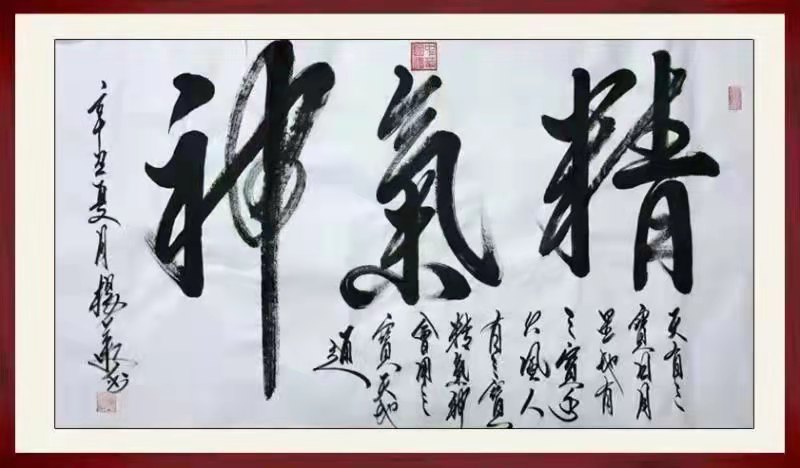 精氣神
天有三
寶日月
星地有
三寶水
火風人
有三寶
精氣神
會用三
寶天地
通
辛丑夏月楊